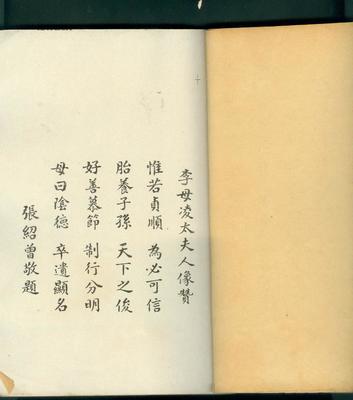 李母凌太夫人像贊
惟若貞順 為必可信
胎養子孫 天下之俊
好善慕節 制行分明
母曰陰德 卒遺顯名
張紹曾敬題